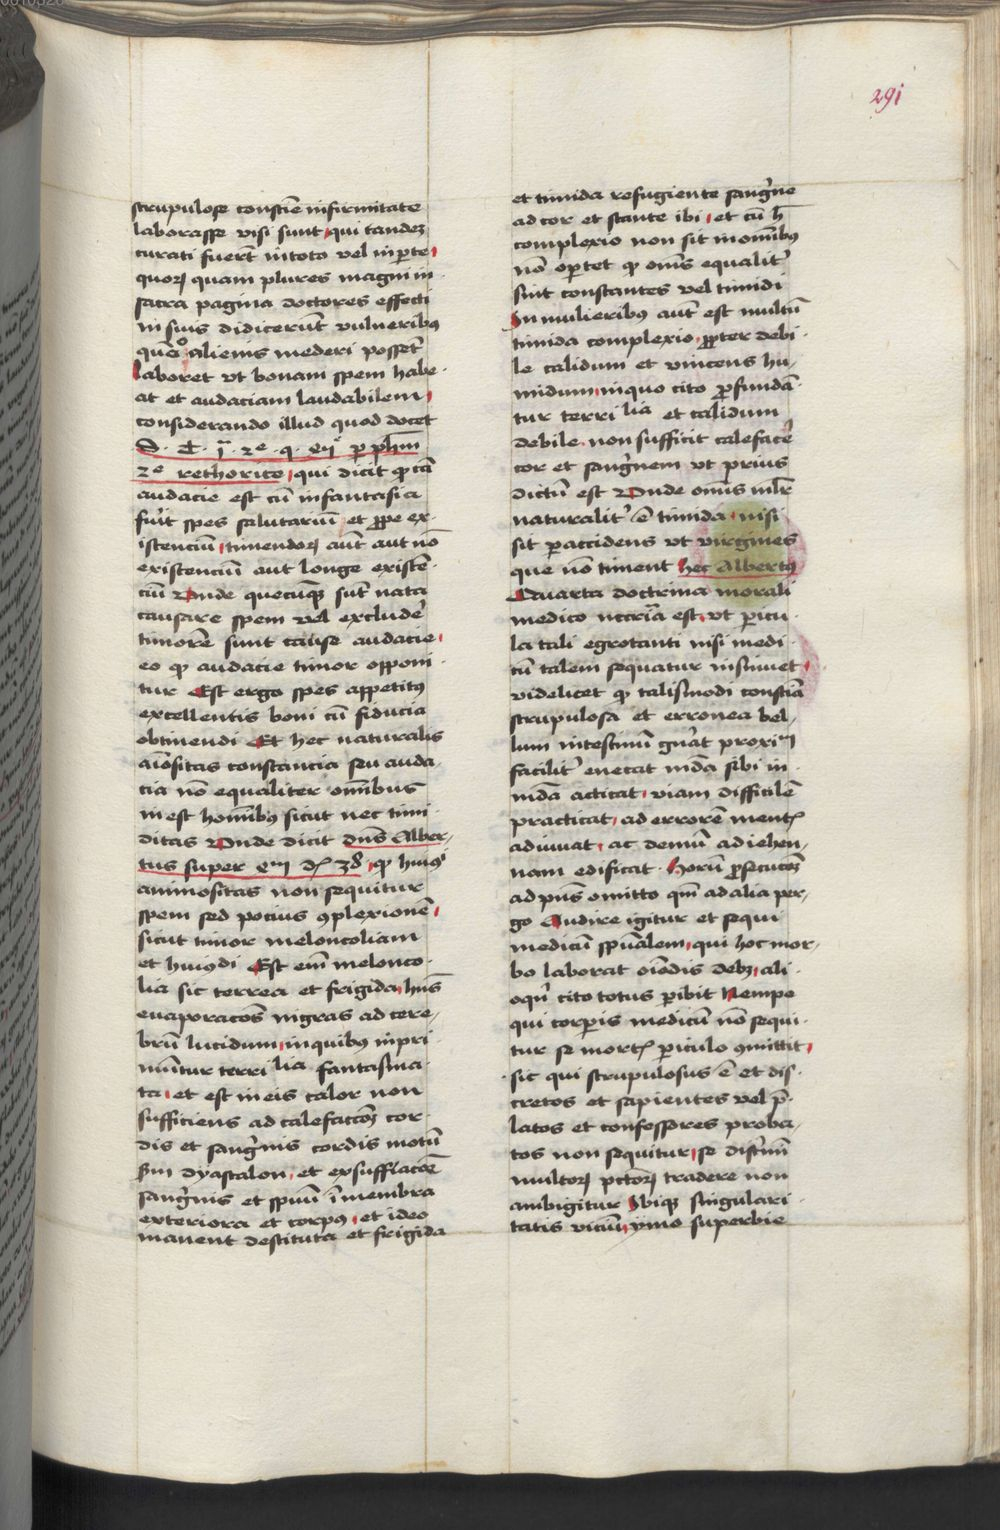 291
scrupulose conscie infirmitate
laborasse visi sunt qui tandez
curati fuert in toto vel in pte
quorꝫ quam plures magni in
sacra pagina doctores effecti
in suis didicerūt vulneribꝰ
quo alienis mederi posset
Laboret vt bonam spem habe
at et audaciam laudabilem
considerando illud quod docet
S. T. 2e. q. p phm
2e rethorice qui dicit ꝙ tā
audacie est cū in fantasia
fuit spes salutariū et ꝓpe ex
istenciū timendorꝫ aut aut nō
existenciū aut longe existē
ciū Unde quecūqꝫ sūt nata
causare spem vel excludē
timorē sunt cause audacie
eo ꝙ audacie timor opponi
tur Est ergo spes appetitꝰ
excellentis boni cū fiducia
obtinendi Et hec naturalis
aīositas constancia seu auda
cia nō equaliter omībus
inest homībꝰ sicut nec timi
ditas Unde dicit dns Alber
tus super ꝙ huiꝰ
animositas non sequitur
spem sed potius ꝯplexionē
sicut timor meloncoliam
et huiꝰdi Est em melonco
lia sic terrea et frigida hns
euaporacoēs nigras ad cere
brū lucidum in quibꝰ inpri
mūtur terribilia fantasma
ta et est in eis calor non
sufficiens ad calefaccoꝫ cor
dis et sangnis cordis motū
sm dyastalon et exsufflacoē
sangnis et spuū ī membra
exteriora et corpꝰ et ideo
manent destituta et frigida
et timida refugiente sangne
ad cor et stante ibi et cū h
complexio non sit in omībꝰ
nō oportet ꝙ oms equalit
sint constantes vel timidi
In mulieribꝰ aut est multū
timida complexio ꝓpter debi
le calidum et vincens hu
midum in quo cito ꝓfundā
tur terribilia et calidum
debile non sufficit calefacē
cor et sangnem vt prius
dictū est Unde oms mlr
naturalit ē timida nisi
sit paccidens vt virgines
que nō timent hec Albertꝰ
Quarta doctrina morali
medico nccria est vt picu
la tali egrotanti nisi medi
cū talem sequatur insinuet
videlicet ꝙ talismodi conscia
scrupulosa et erronea bel
lum intestinū gnāt proximū
facilit enecat mda sibi in
mda acticat viam difficilē
practicat ad errorē mentꝭ
adiuuat ac demū ad iehen
nam edificat horū ꝓsecucoꝫ
ad pns omitto qm ad alia per
go Audire igitur et sequi
medicū spūalem qui hoc mor
bo laborat oīodis debꝫ ali
oqn cito totus pibit Nempe
qui corpis medicū nō sequi
tur se mortꝭ piculo ꝯmittit
sic qui scrupulosus ē et dis
cretos et sapientes vel p
latos et confessores proba
tos non sequitur se discrimi
multorꝫ pctorꝫ tradere non
ambigitur Ubiqꝫ singulari
tatis viciū ymo superbie